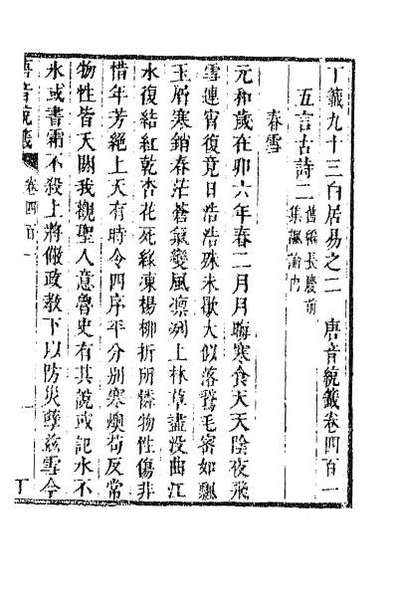 丁籤九十三白居易之二　唐音統籤卷四百一
五言古詩二舊編長慶前集諷諭內
春雪
元和歲在卯六年春二月月晦寒食天天陰夜飛
雪連宵復竟日浩浩殊未歇大似落鵞毛密如飄
玉屑寒銷春茫蒼氣變風凛冽上林草盡没曲江
水復結紅乾杏花死綠凍楊柳折所憐物性傷非
惜年芳絕上天有時令四序平分别寒燠苟反常
物性皆夭閼我觀聖人意魯史有其說或記水不
氷或書霜不殺上將儆政教下以防災孽兹雪今
唐音統籤　卷四百一　一　丁